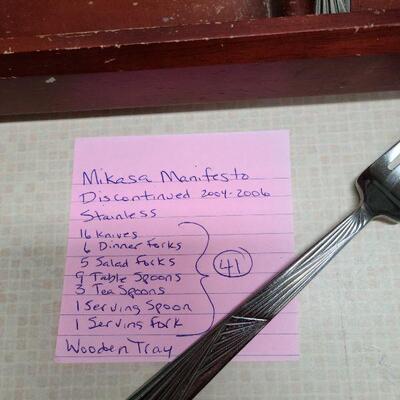 Mikasa Manifesto
Discontinued 2004-2006
Stainless
16 Knives
6 Dinner Forks
5 Salad Forks
9 Table Spoons
3 Tea Spoons
1 Serving Spoon
1 Serving Fork
41
Wooden Tray